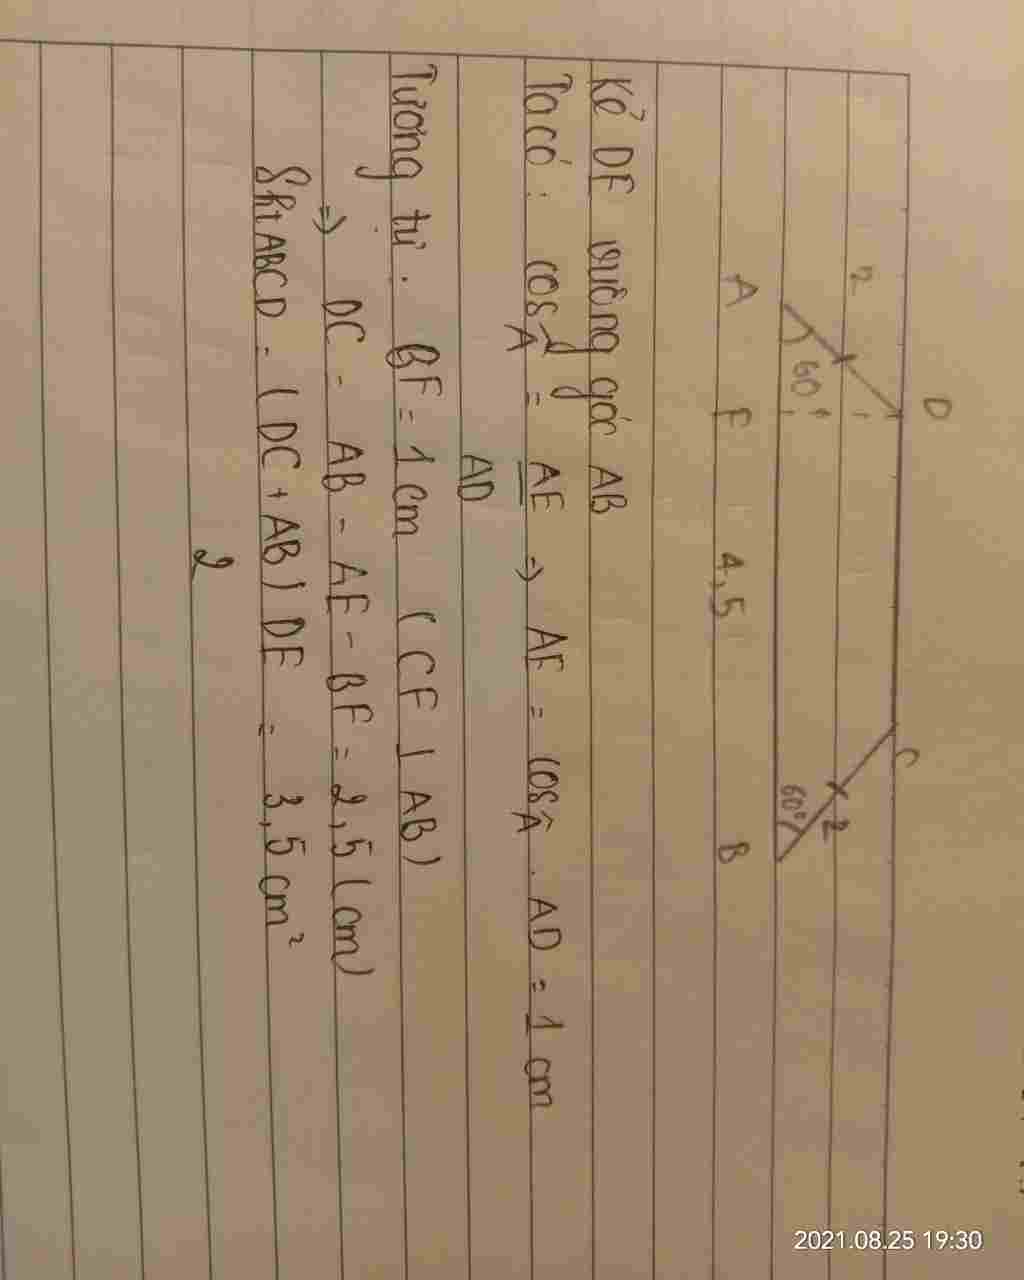 D
C
2
2
60°
60°
A
E
4,5
B
Kẻ DE vuông góc AB
Ta có : cosÂ = AE/AD => AE = cosÂ . AD = 1 cm
Tương tự . BF = 1 cm ( CF ⊥ AB)
=> DC = AB - AE - BF = 2,5 (cm)
ShtABCD = (DC + AB) DE / 2 = 3,5 cm²
2021.08.25 19:30